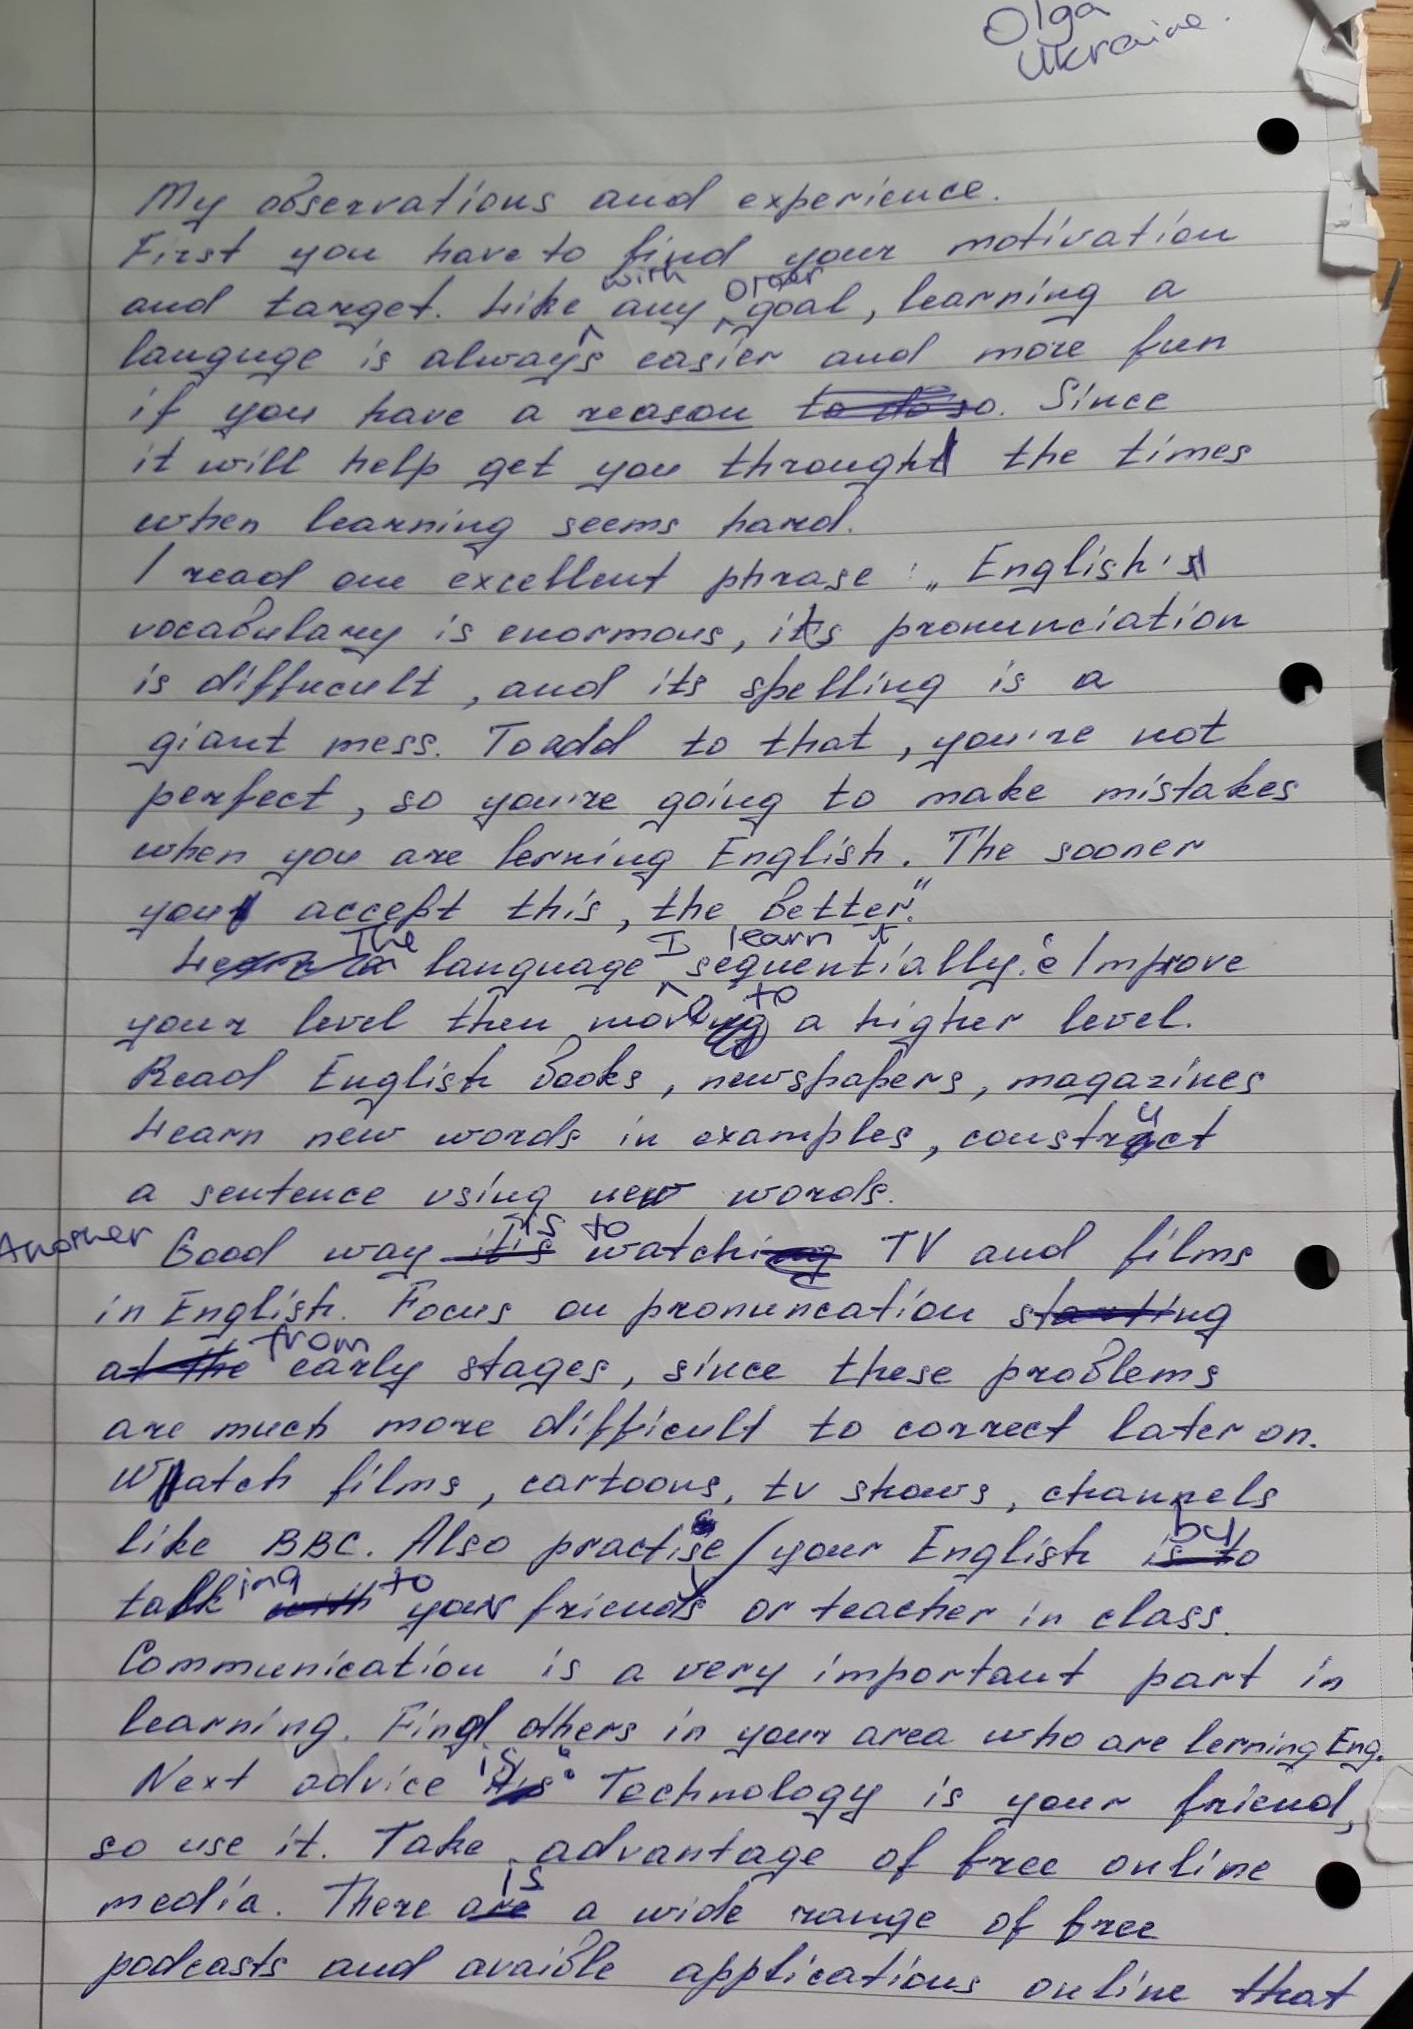 Olga
Ukraine.
My observations and experience.
First you have to find your motivation
and target. Like with any other goal, learning a
languge is always easier and more fun
if you have a reason to do so. Since
it will help get you throught the times
when learning seems hard.
I read one excellent phrase: „English's
vocabulary is enormous, its pronunciation
is diffucult, and its spelling is a
giant mess. To add to that, you're not
perfect, so you're going to make mistakes
when you are lerning English. The sooner
you accept this, the better."
The language I learn sequentially. Improve
your level then move to a higher level.
Read English books, newspapers, magazines
Learn new words in examples, construct
a sentence using new words.
Another Good way is to watch TV and films
in English. Focus on pronuncation starting
at the from early stages, since these problems
are much more difficult to correct later on.
Watch films, cartoons, tv shows, channels
like BBC. Also practise your English by
talking to your friends or teacher in class.
Communication is a very important part in
learning. Find others in your area who are lerning Eng.
Next advice is: Technology is your friend,
so use it. Take advantage of free online
media. There is a wide range of free
podcasts and avaible applications online that